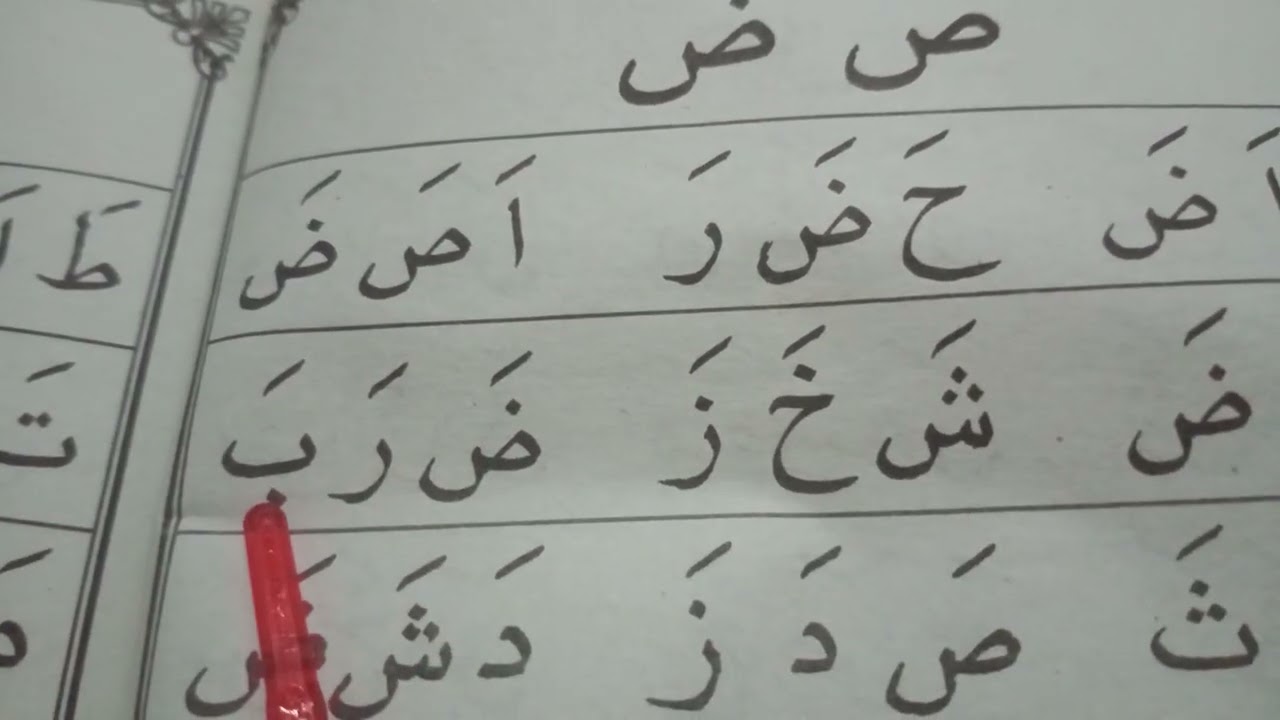 ص ض
اَ ضَ حَ ضَ رَ اَ صَ ضَ
ضَ شَ خَ زَ ضَ رَ بَ
ثَ صَ دَ زَ دَ شَ ضَ
طَ
تَ